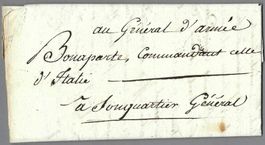 au Général d'armée
Bonaparte, Commandant celle
d'Italie
à Son quartier Général